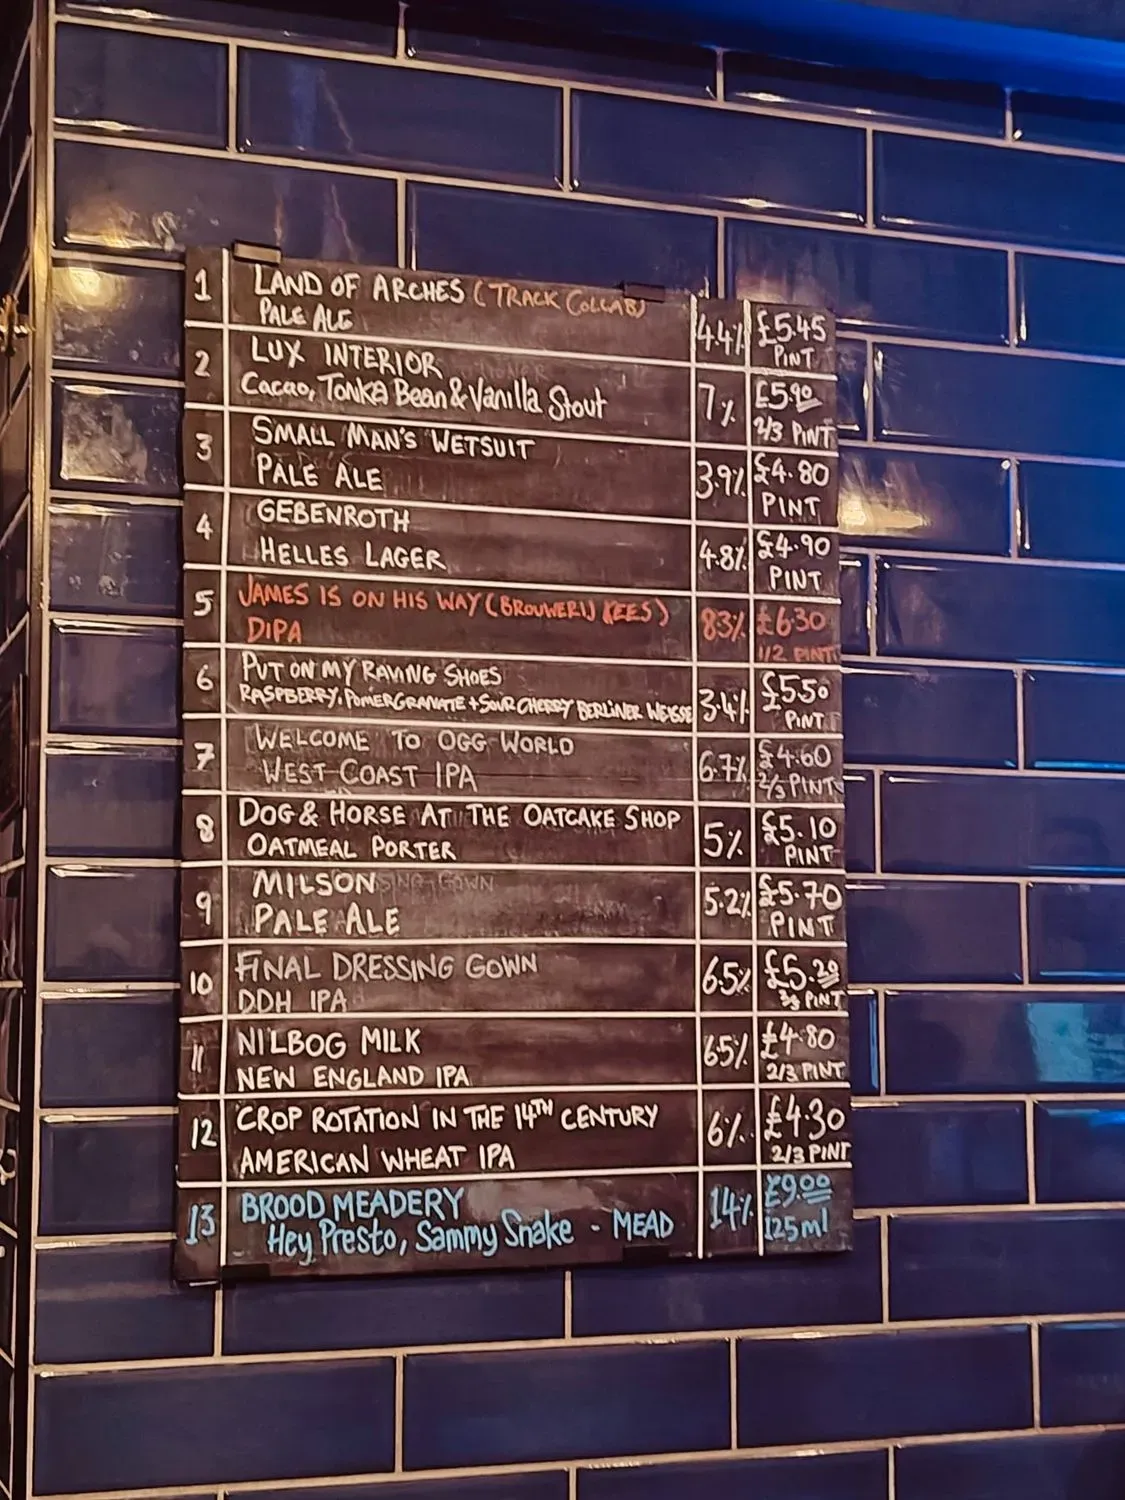 1 LAND OF ARCHES (TRACK COLLAB)
PALE ALE
4.4% £5.45
PINT
2 LUX INTERIOR
Cacao, Tonka Bean & Vanilla Stout
7% £5.90
2/3 PINT
3 SMALL MAN'S WETSUIT
PALE ALE
3.9% £4.80
PINT
4 GEBENROTH
HELLES LAGER
4.8% £4.90
PINT
5 JAMES IS ON HIS WAY (BROUWERIJ KEES)
DIPA
83% £6.30
1/2 PINT
6 PUT ON MY RAVING SHOES
RASPBERRY, POMERGRANATE + SOUR CHERRY BERLINER WEISSE
3.4% £5.50
PINT
7 WELCOME TO OGG WORLD
WEST COAST IPA
6.7% £4.60
2/3 PINT
8 DOG & HORSE AT THE OATCAKE SHOP
OATMEAL PORTER
5% £5.10
PINT
9 MILSON
PALE ALE
5.2% £5.70
PINT
10 FINAL DRESSING GOWN
DDH IPA
6.5% £5.20
PINT
11 NILBOG MILK
NEW ENGLAND IPA
6.5% £4.80
2/3 PINT
12 CROP ROTATION IN THE 14TH CENTURY
AMERICAN WHEAT IPA
6% £4.30
2/3 PINT
13 BROOD MEADERY
Hey Presto, Sammy Snake - MEAD
14% £9.00
125ml